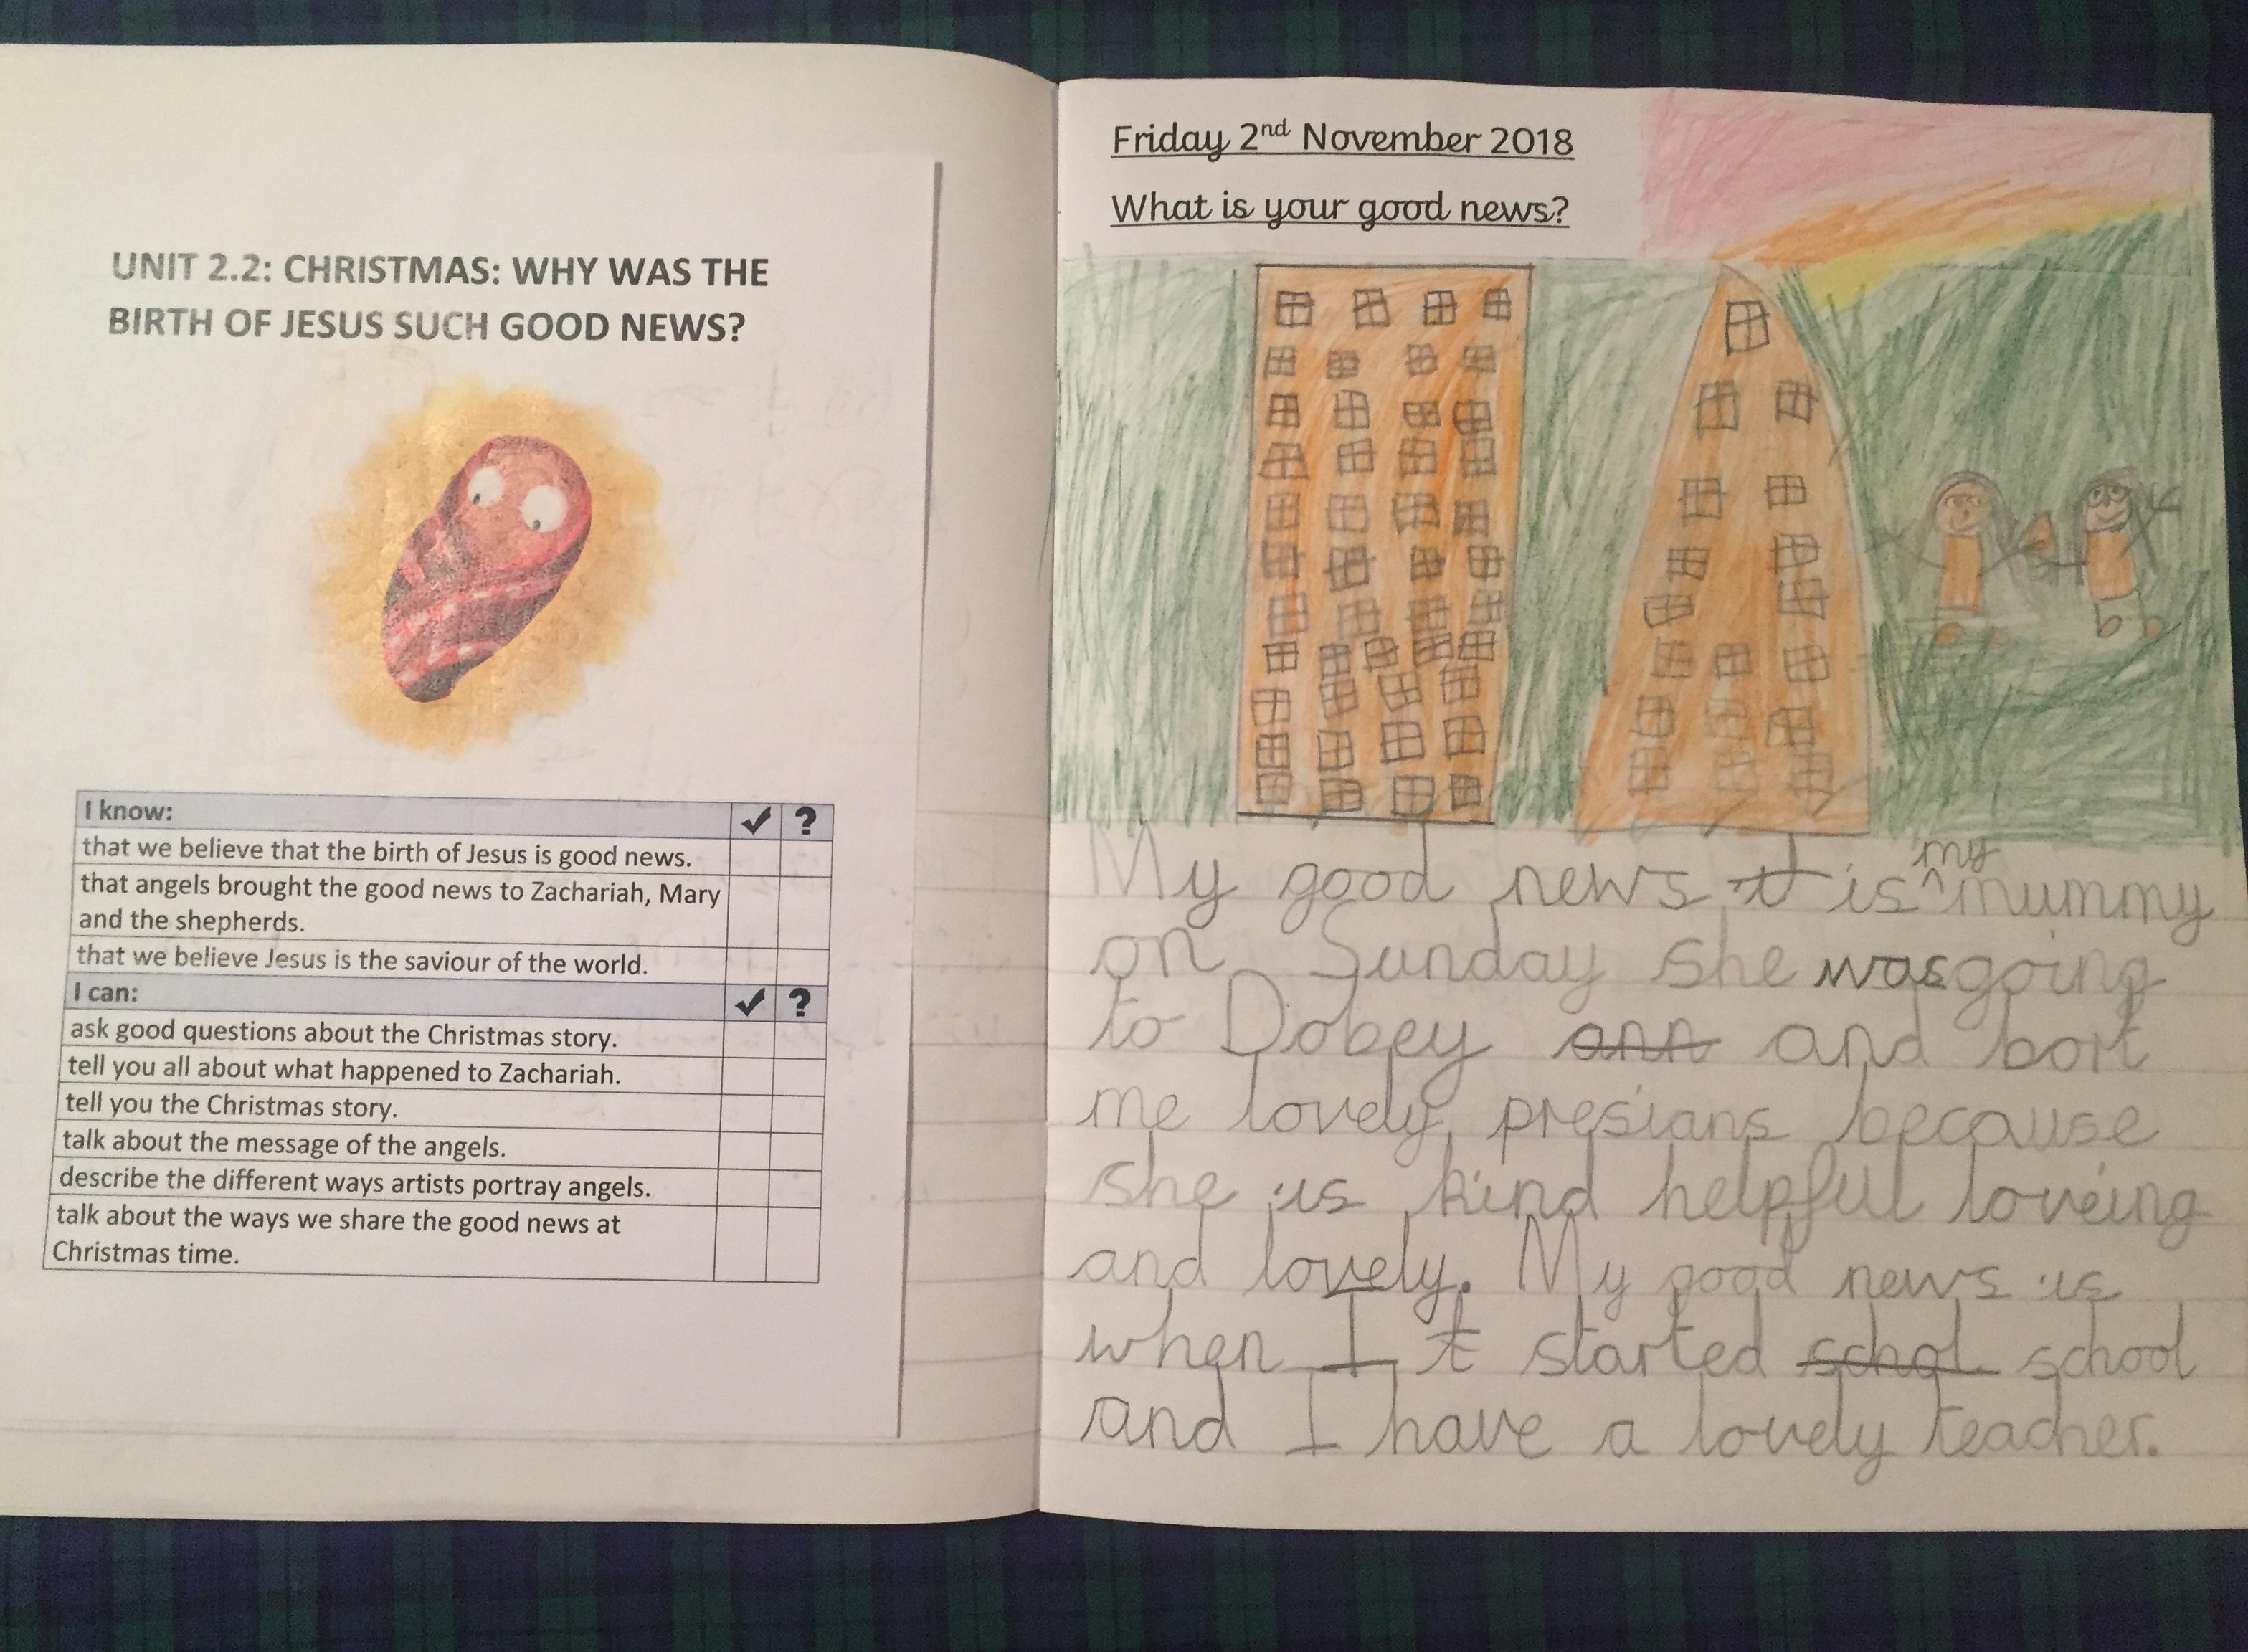 UNIT 2.2: CHRISTMAS: WHY WAS THE
BIRTH OF JESUS SUCH GOOD NEWS?
I know: ✓ ?
that we believe that the birth of Jesus is good news.
that angels brought the good news to Zachariah, Mary
and the shepherds.
that we believe Jesus is the saviour of the world.
I can: ✓ ?
ask good questions about the Christmas story.
tell you all about what happened to Zachariah.
tell you the Christmas story.
talk about the message of the angels.
describe the different ways artists portray angels.
talk about the ways we share the good news at
Christmas time.
Friday 2nd November 2018
What is your good news?
My good news it is ^my mummy
on Sunday she was going
to Dobey ann and bort
me lovely presians because
she is kind helpful loveing
and lovely. My good news is
when I t started schol school
and I have a lovely teacher.